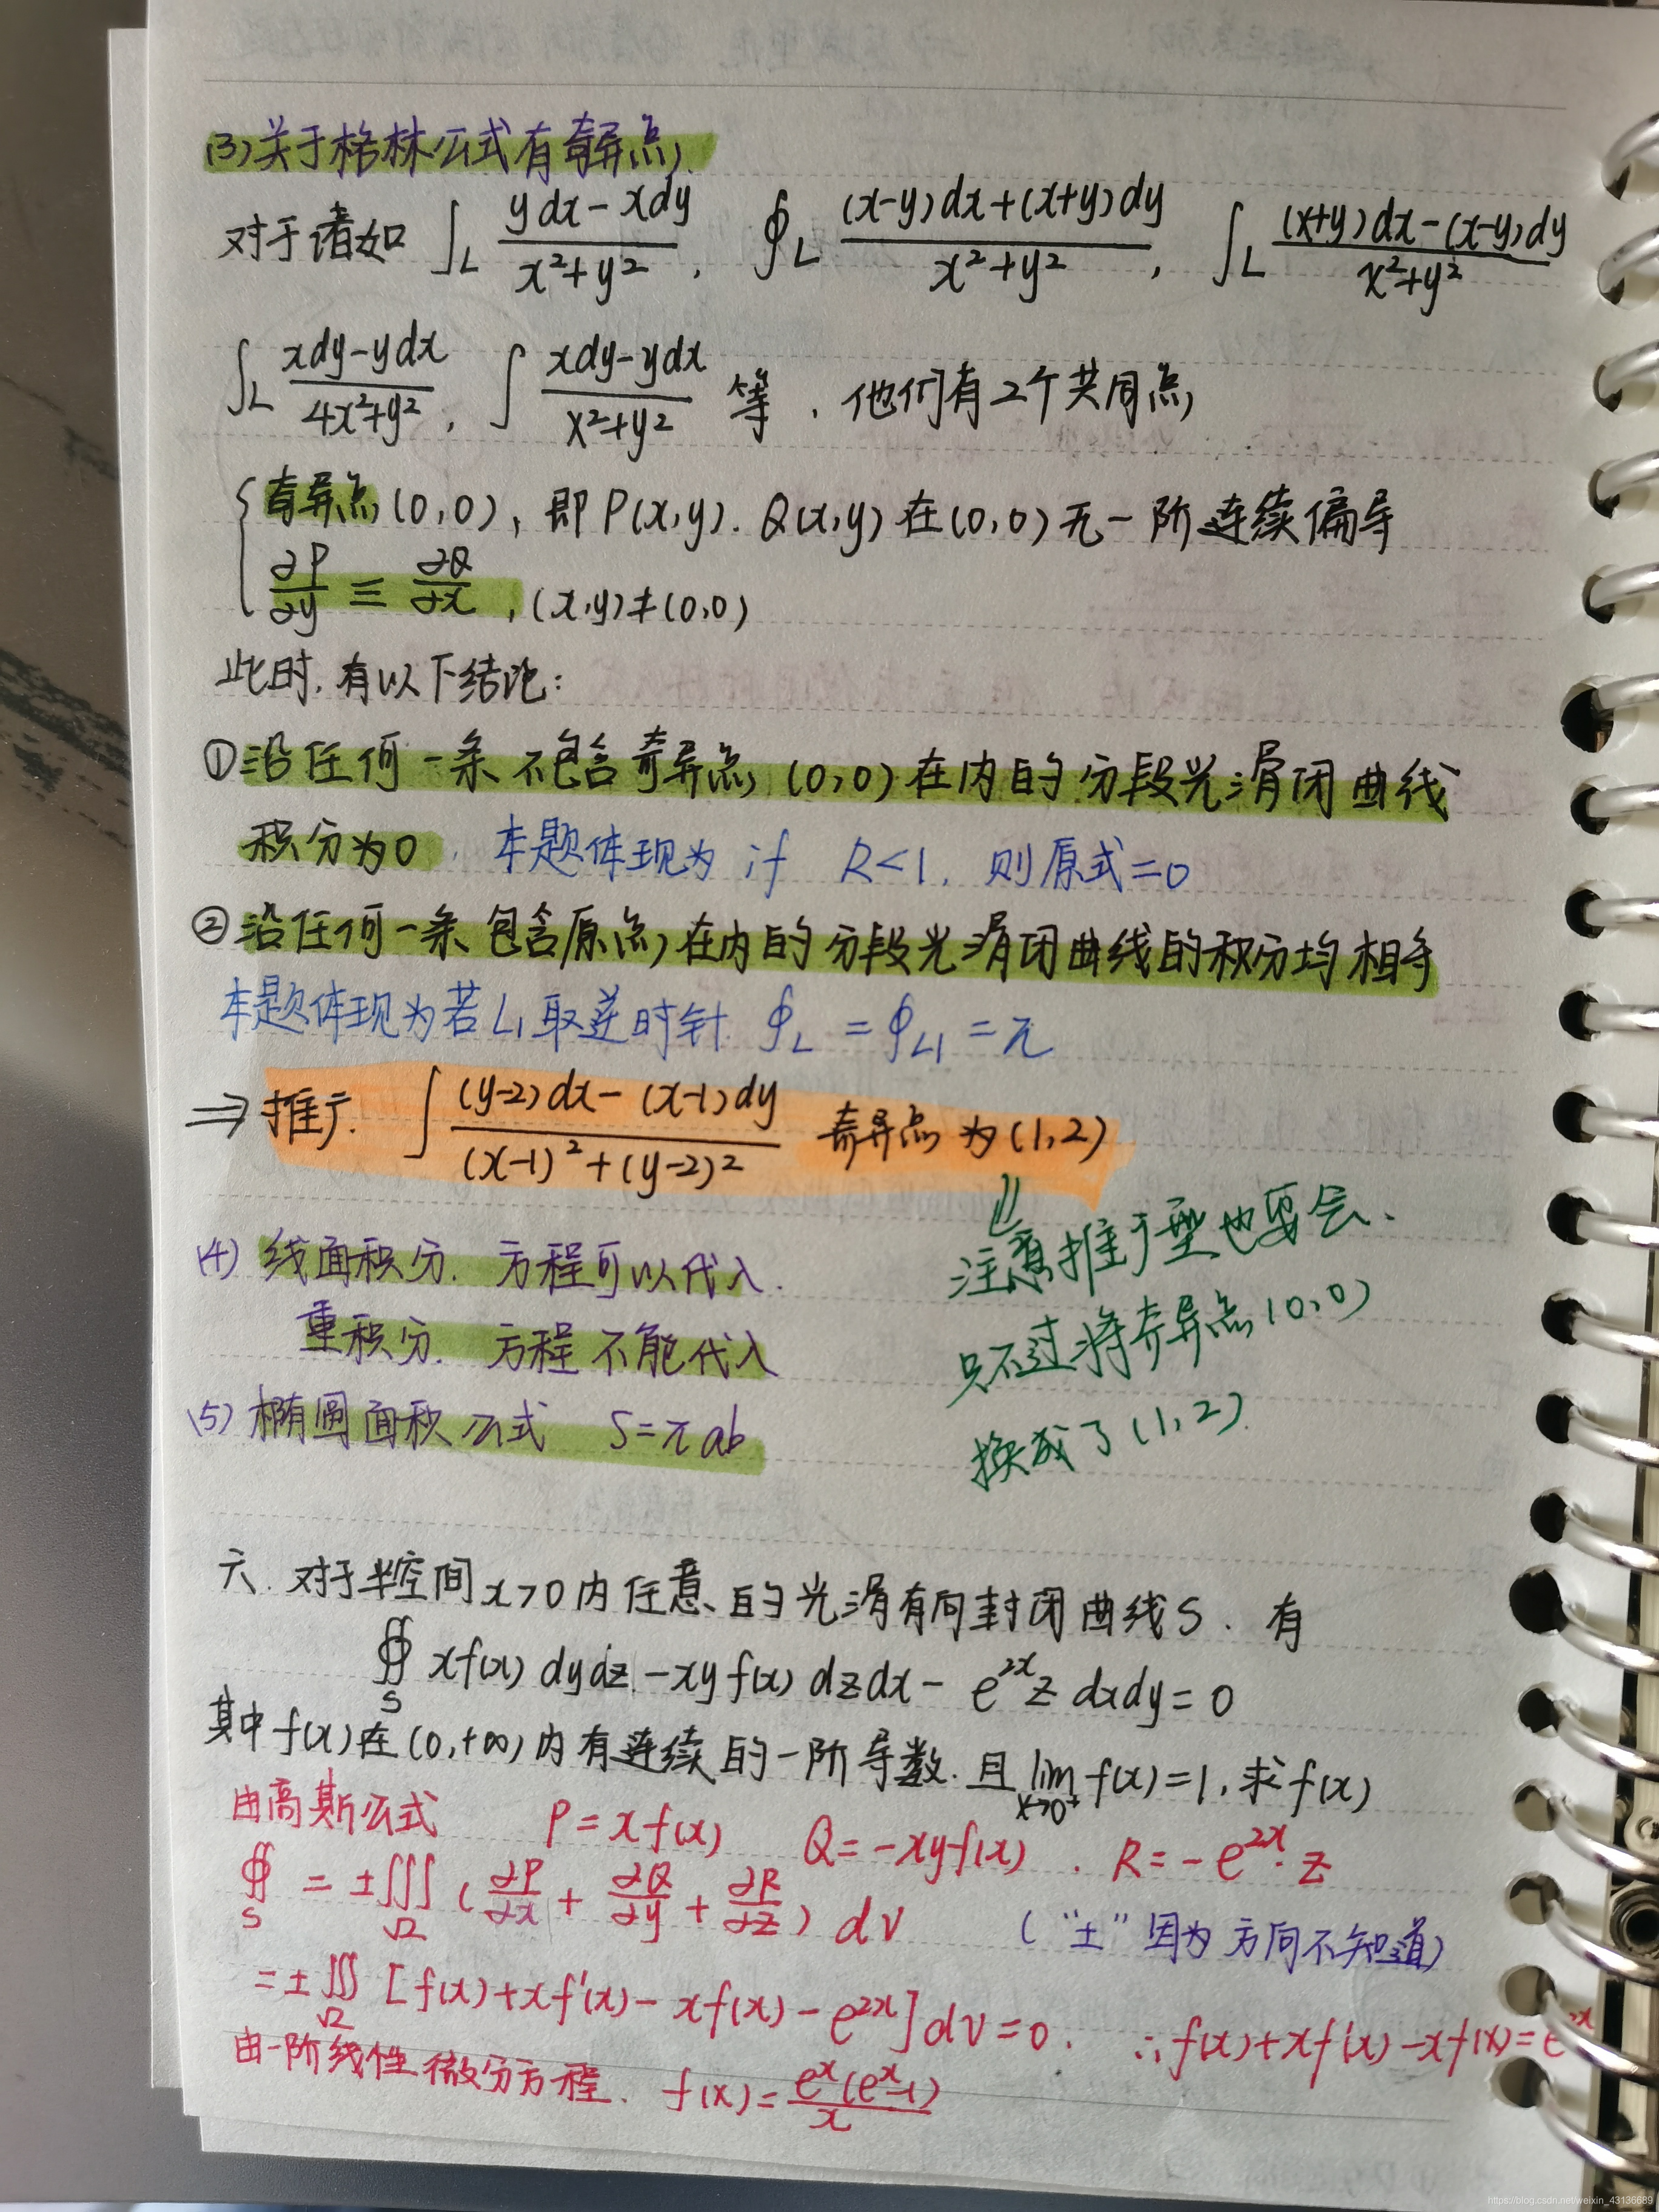 (3)关于格林公式有奇异点
对于诸如 ∫_L (ydx-xdy)/(x²+y²), ∮_L ((x-y)dx+(x+y)dy)/(x²+y²), ∫_L ((x+y)dx-(x-y)dy)/(x²+y²)
∫_L (xdy-ydx)/(4x²+y²), ∫ (xdy-ydx)/(x²+y²) 等, 他们有2个共同点
{ 奇异点(0,0), 即P(x,y). Q(x,y)在(0,0)无一阶连续偏导
∂P/∂y ≡ ∂Q/∂x, (x,y)≠(0,0)
此时, 有以下结论:
①沿任何一条不包含奇异点(0,0)在内的分段光滑闭曲线
积分为0. 本题体现为 if R<1, 则原式=0
②沿任何一条包含原点在内的分段光滑闭曲线的积分均相等
本题体现为若L₁取逆时针 ∮_L = ∮_L₁ = π
⇒推广. ∫ ((y-2)dx-(x-1)dy)/((x-1)²+(y-2)²) 奇异点为(1,2)
⇓
注意推广型也要会、
只不过将奇异点(0,0)
换成了(1,2).
(4) 线面积分. 方程可以代入.
重积分. 方程不能代入
(5) 椭圆面积公式 S=πab
六. 对于半空间x>0内任意的光滑有向封闭曲线S. 有
∯_S xf(x)dydz-xyf(x)dzdx-e^{2x}zdxdy=0
其中f(x)在(0,+∞)内有连续的一阶导数. 且lim_{x→0⁺}f(x)=1, 求f(x)
由高斯公式 P=xf(x) Q=-xyf(x). R=-e^{2x}·z
∯_S = ±∭_Ω (∂P/∂x + ∂Q/∂y + ∂R/∂z) dV ("±"因为方向不知道)
=±∭_Ω [f(x)+xf'(x)-xf(x)-e^{2x}]dV=0. ∴f(x)+xf'(x)-xf(x)=e^{2x}
由一阶线性微分方程. f(x)=e^x(e^x-1)/x
https://blog.csdn.net/weixin_43136689